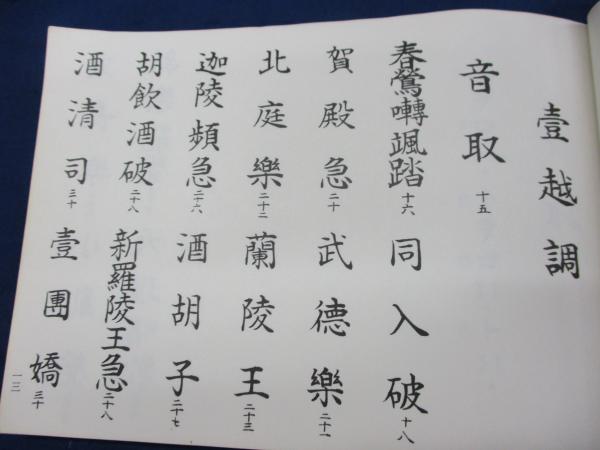 壹越調
音取 十五
春鶯囀颯踏 十六
同入破 十八
賀殿急 二十
武德樂 二十一
北庭樂 二十二
蘭陵王 二十三
迦陵頻急 二十六
酒胡子 二十七
胡飲酒破 二十八
新羅陵王急 二十八
酒清司 三十
壹團嬌 三十
一三